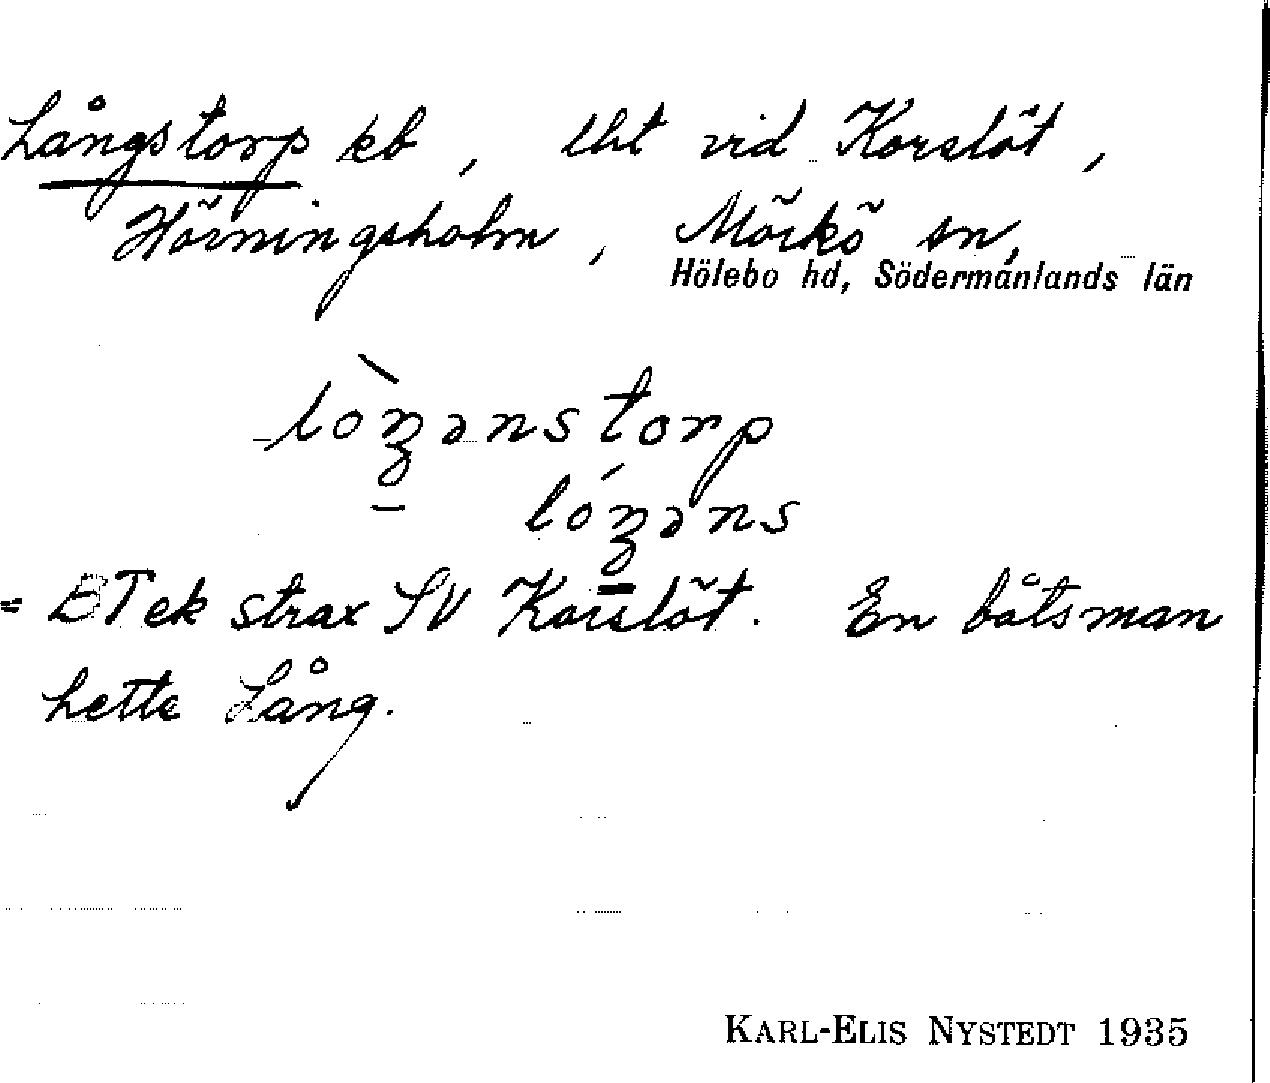 Långstorp kb, lht vid Korslöt,
Hörningsholm, Mörkö sn,
Hölebo hd, Södermanlands län
lòŋənstorp
lóŋəns
= BT ek strax SV Korslöt. En båtsman
hette Lång.
KARL-ELIS NYSTEDT 1935